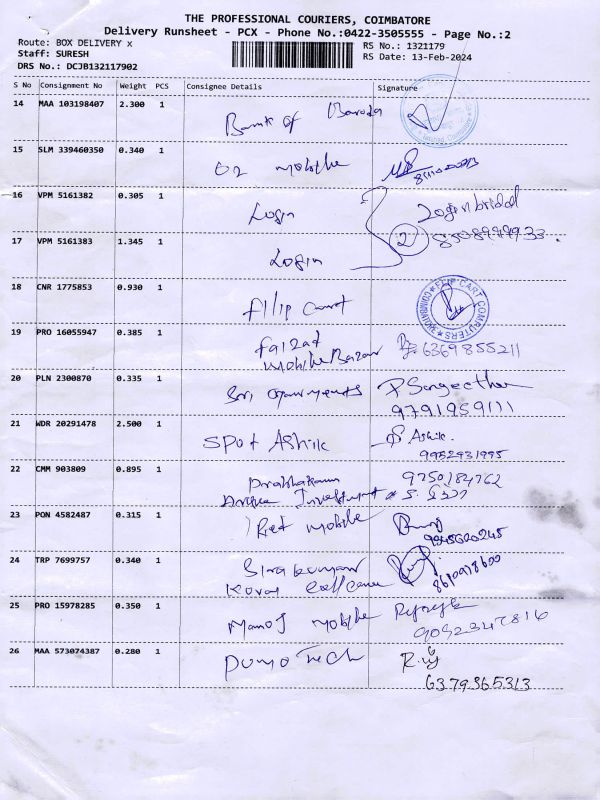 THE PROFESSIONAL COURIERS, COIMBATORE
Delivery Runsheet - PCX - Phone No.:0422-3505555 - Page No.:2
Route: BOX DELIVERY x
RS No.: 1321179
Staff: SURESH
RS Date: 13-Feb-2024
DRS No.: DCJB132117902
S No Consignment No Weight PCS Consignee Details Signature
14 MAA 103198407 2.300 1 Bank of Baroda
15 SLM 339460350 0.340 1 O2 mobile
16 VPM 5161382 0.305 1 Login Login bridal
17 VPM 5161383 1.345 1 Login 2
18 CNR 1775853 0.930 1 flip Cart
FLIP CART COMPUTERS
19 PRO 16055947 0.385 1 faizat
Mobile Bazar 6369855211
20 PLN 2300870 0.335 1 Sri Garments P Sangeetha
9791959111
21 WDR 20291478 2.500 1 Spot Ashik Ashik.
9952931995
22 CMM 903809 0.895 1 Prabhakaran 9750184762
Investment
23 PON 4582487 0.315 1 Red mobile
24 TRP 7699757 0.340 1 Sivakumar
Kovai
25 PRO 15978285 0.350 1 Manoj mobile
26 MAA 573074387 0.280 1 Pumo Tech
6379365313